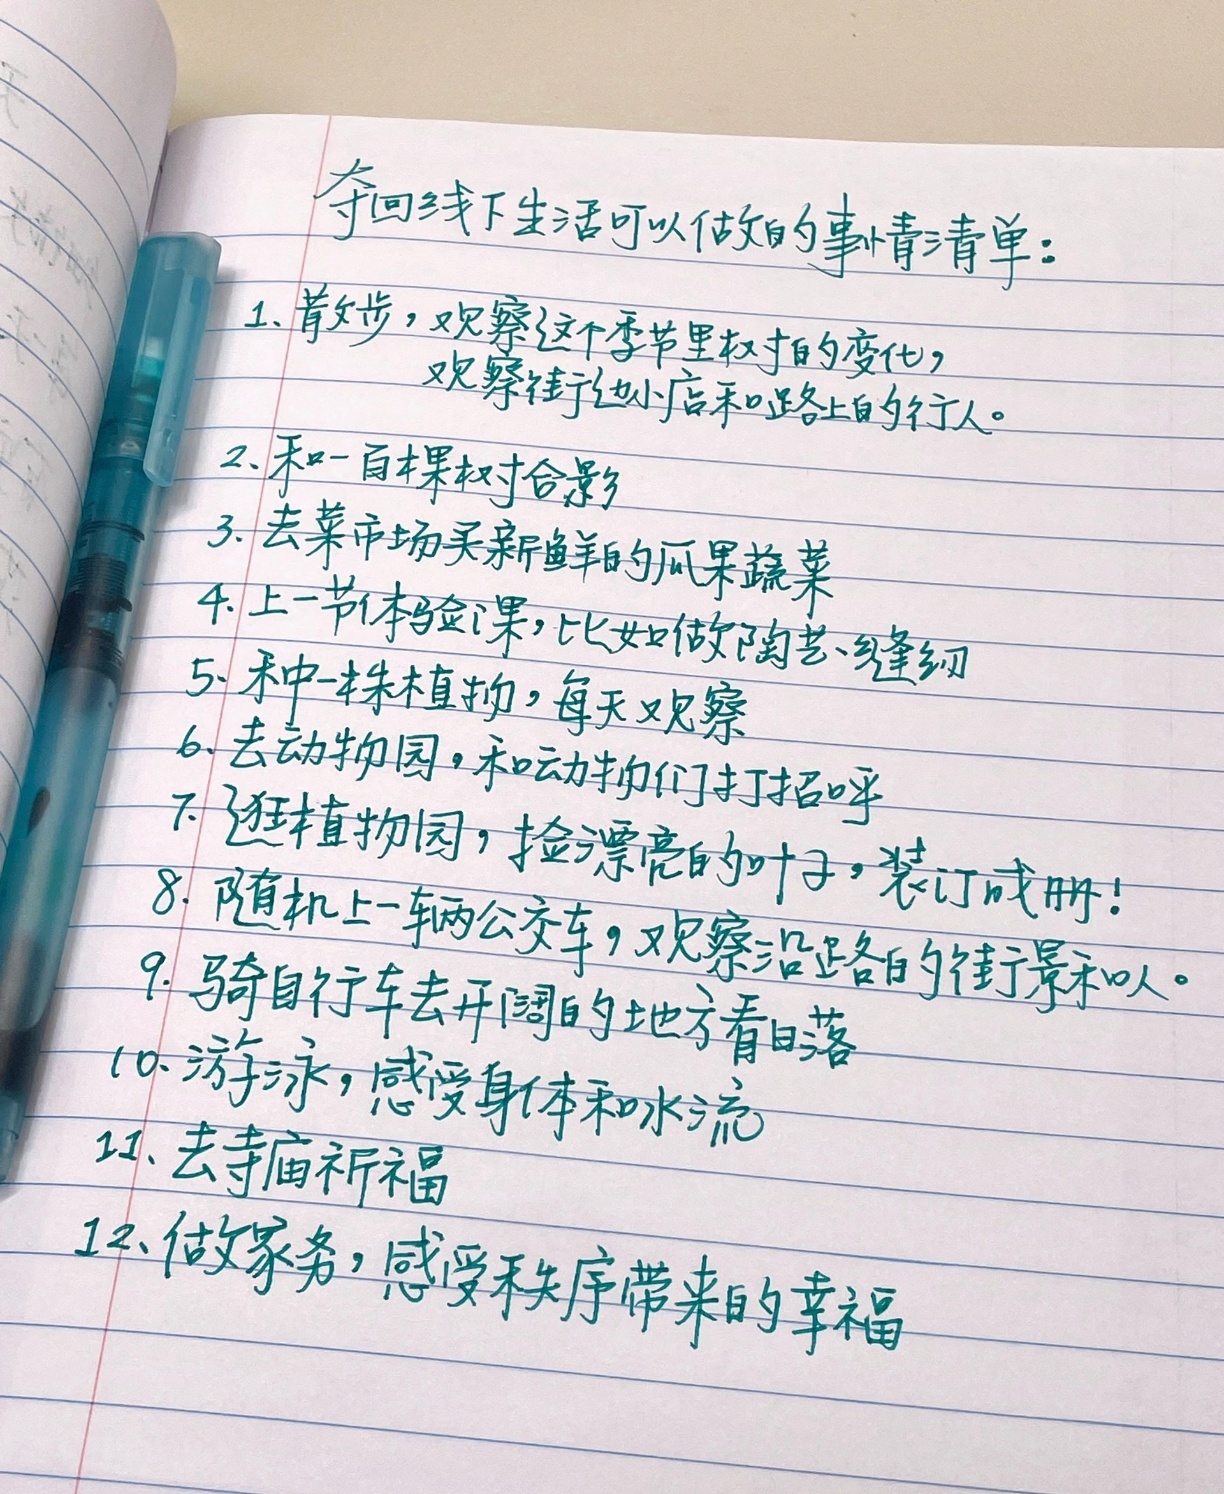 夺回线下生活可以做的事情清单：
1、散步，观察这个季节里树的变化，
观察街边小店和路上的行人。
2、和一百棵树合影
3、去菜市场买新鲜的瓜果蔬菜
4、上一节体验课，比如做陶艺、缝纫
5、种一株植物，每天观察
6、去动物园，和动物们打招呼
7、逛植物园，捡漂亮的叶子，装订成册！
8、随机上一辆公交车，观察沿路的街景和人。
9、骑自行车去开阔的地方看日落
10、游泳，感受身体和水流
11、去寺庙祈福
12、做家务，感受秩序带来的幸福